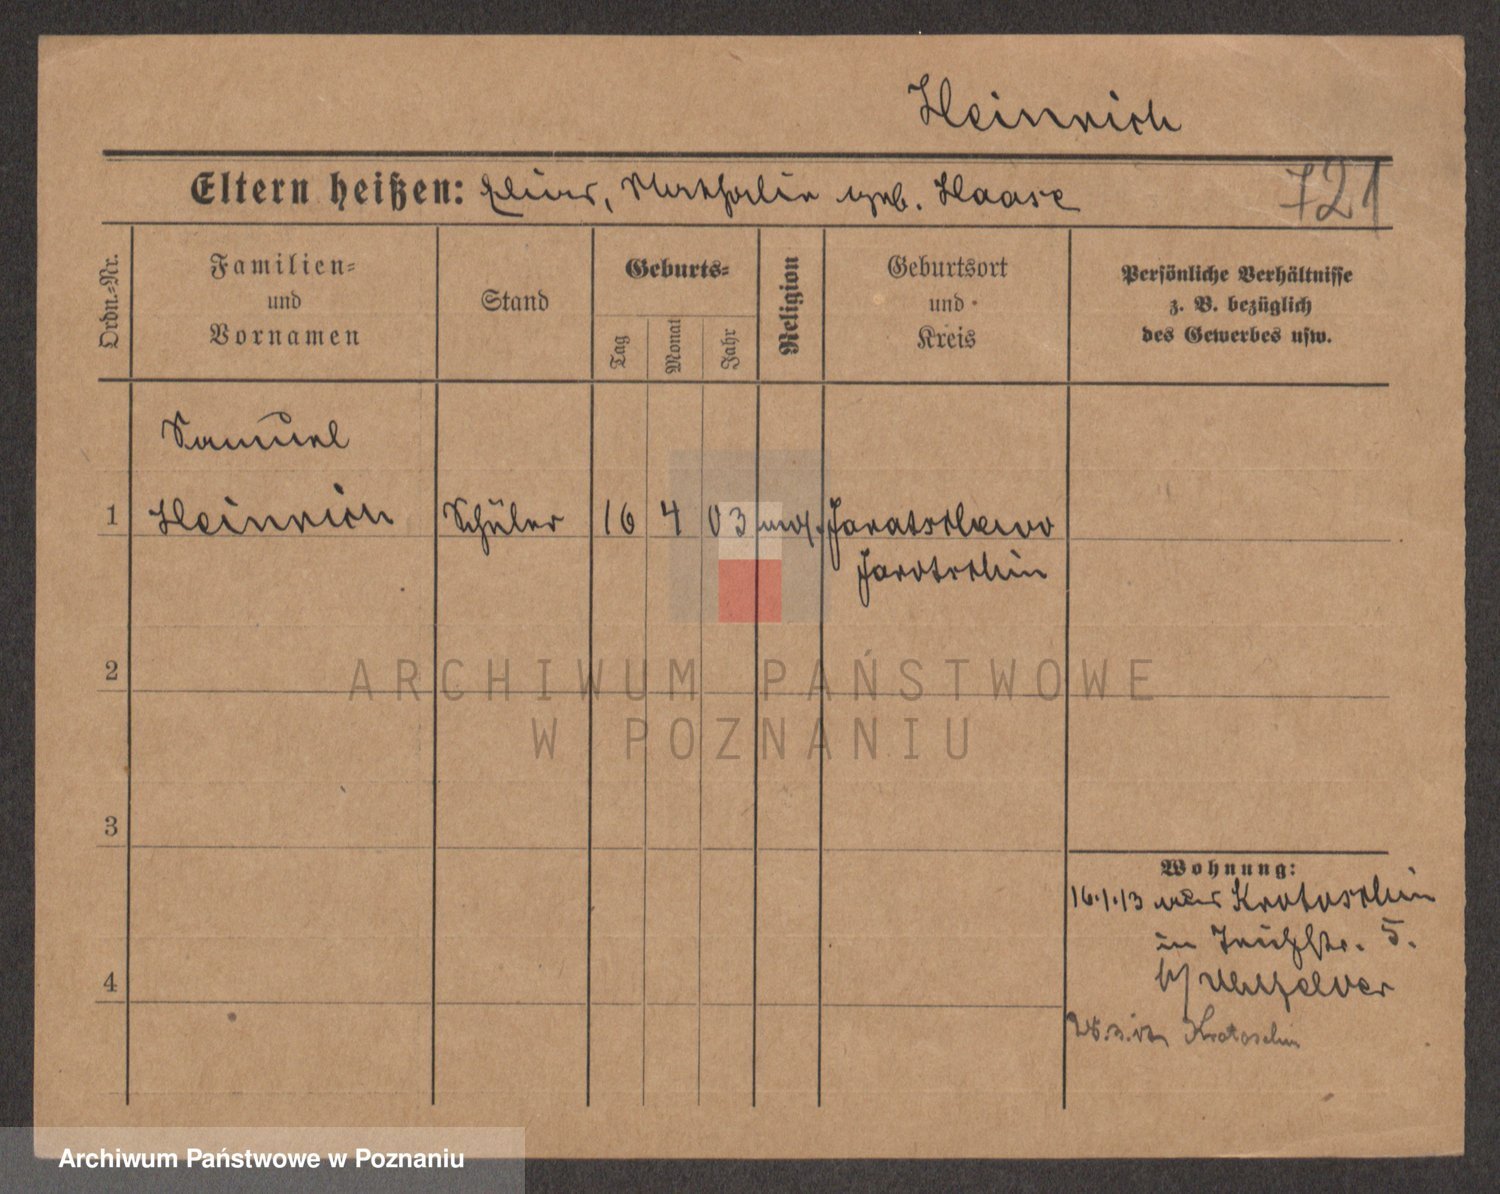 Heinrich
Eltern heißen: Mathilde geb. Haase
721
Ordn.-Nr.
Familien-
und
Vornamen
Stand
Geburts-
Tag
Monat
Jahr
Religion
Geburtsort
und
Kreis
Persönliche Verhältnisse
z. B. bezüglich
des Gewerbes usw.
Samuel
1 Heinrich Schüler 16 4 03 Jaratschewo
Jarotschin
2
3
4
Wohnung:
16.1.13 Krotoschin
in 5.
b/
Krotoschin
ARCHIWUM PAŃSTWOWE
W POZNANIU
Archiwum Państwowe w Poznaniu